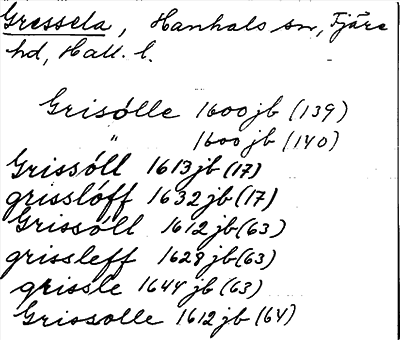 Gressela, Hanhals sn, Fjäre
hd, Hall. l.
Grisölle 1600 jb (139)
" 1600 jb (140)
Grissöll 1613 jb (17)
grisslöff 1632 jb (17)
Grissöll 1612 jb (63)
grissleff 1628 jb (63)
grissle 1644 jb (63)
Grissolle 1612 jb (64)